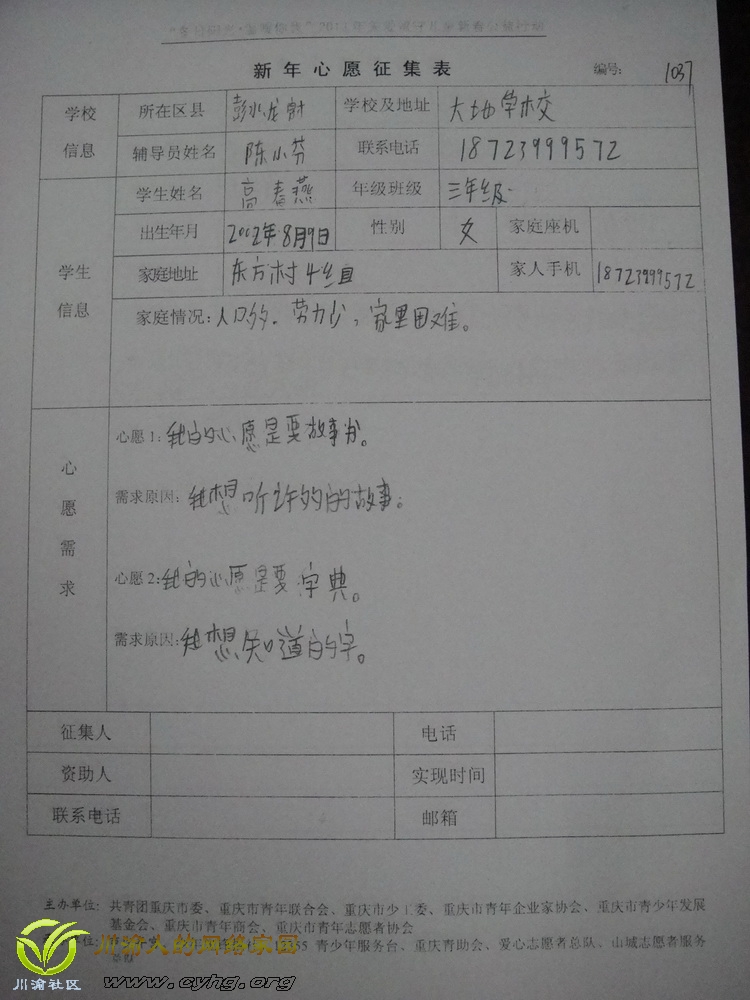 新年心愿征集表 编号: 1037
学校信息 所在区县 彭水龙射 学校及地址 大地学校
辅导员姓名 陈小芬 联系电话 18723999572
学生信息 学生姓名 高春燕 年级班级 三年级
出生年月 2002年8月9日 性别 女 家庭座机
家庭地址 东方村4组 家人手机 18723999572
家庭情况: 人口多.劳力少,家里困难。
心愿需求
心愿1: 我的心愿是要故事书。
需求原因: 我想听许多的故事。
心愿2: 我的心愿是要字典。
需求原因: 我想知道的字。
征集人 电话
资助人 实现时间
联系电话 邮箱
主办单位: 共青团重庆市委、重庆市青年联合会、重庆市少工委、重庆市青年企业家协会、重庆市青少年发展
基金会、重庆市青年商会、重庆市青年志愿者协会
青少年服务台、重庆青助会、爱心志愿者总队、山城志愿者服务
川渝人的网络家园
川渝社区 www.cyhg.org